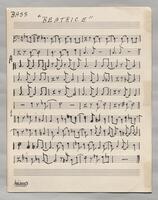 BASS
"BEATRICE"
A